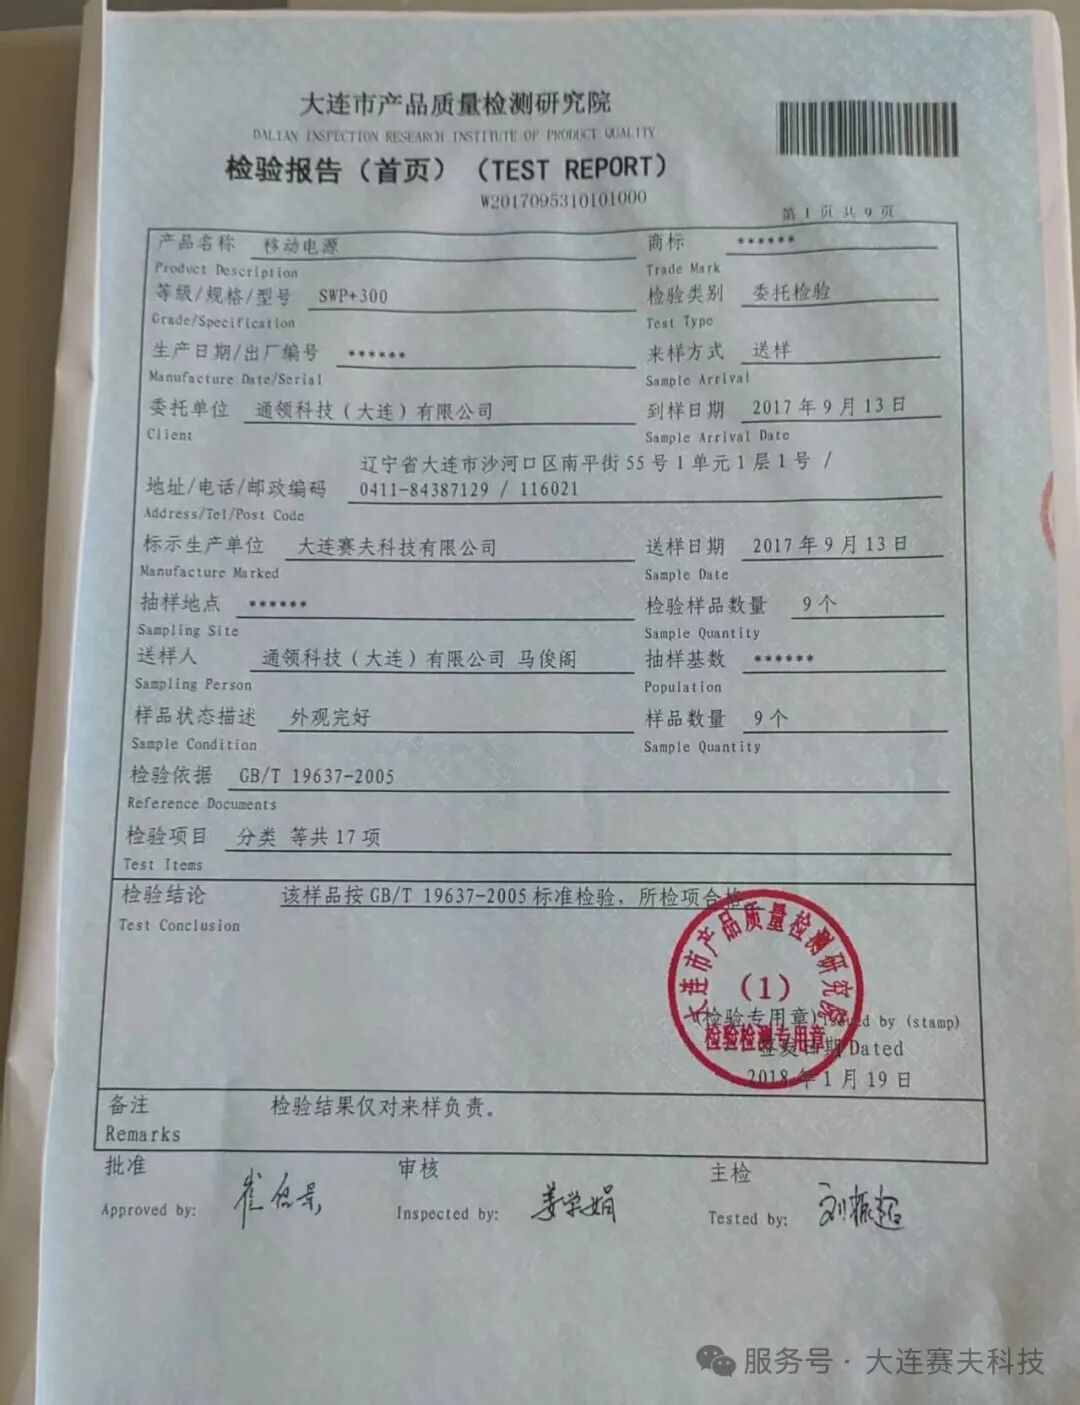 大连市产品质量检测研究院
DALIAN INSPECTION RESEARCH INSTITUTE OF PRODUCT QUALITY
检验报告（首页）（TEST REPORT）
W2017095310101000
第 1 页 共 9 页
产品名称 移动电源 商标 ******
Product Description Trade Mark
等级/规格/型号 SWP+300 检验类别 委托检验
Grade/Specification Test Type
生产日期/出厂编号 ****** 来样方式 送样
Manufacture Date/Serial Sample Arrival
委托单位 通领科技（大连）有限公司 到样日期 2017 年 9 月 13 日
Client Sample Arrival Date
辽宁省大连市沙河口区南平街 55 号 1 单元 1 层 1 号 /
地址/电话/邮政编码 0411-84387129 / 116021
Address/Tel/Post Code
标示生产单位 大连赛夫科技有限公司 送样日期 2017 年 9 月 13 日
Manufacture Marked Sample Date
抽样地点 ****** 检验样品数量 9 个
Sampling Site Sample Quantity
送样人 通领科技（大连）有限公司 马俊阁 抽样基数 ******
Sampling Person Population
样品状态描述 外观完好 样品数量 9 个
Sample Condition Sample Quantity
检验依据 GB/T 19637-2005
Reference Documents
检验项目 分类 等共 17 项
Test Items
检验结论 该样品按 GB/T 19637-2005 标准检验，所检项合格
Test Conclusion
大连市产品质量检测研究院
（1）
检验检测专用章
(检验专用章) Issued by (stamp)
签发日期 Dated
2018 年 1 月 19 日
备注 检验结果仅对来样负责。
Remarks
批准 审核 主检
Approved by: Inspected by: 姜学娟 Tested by: 刘振超
服务号 · 大连赛夫科技